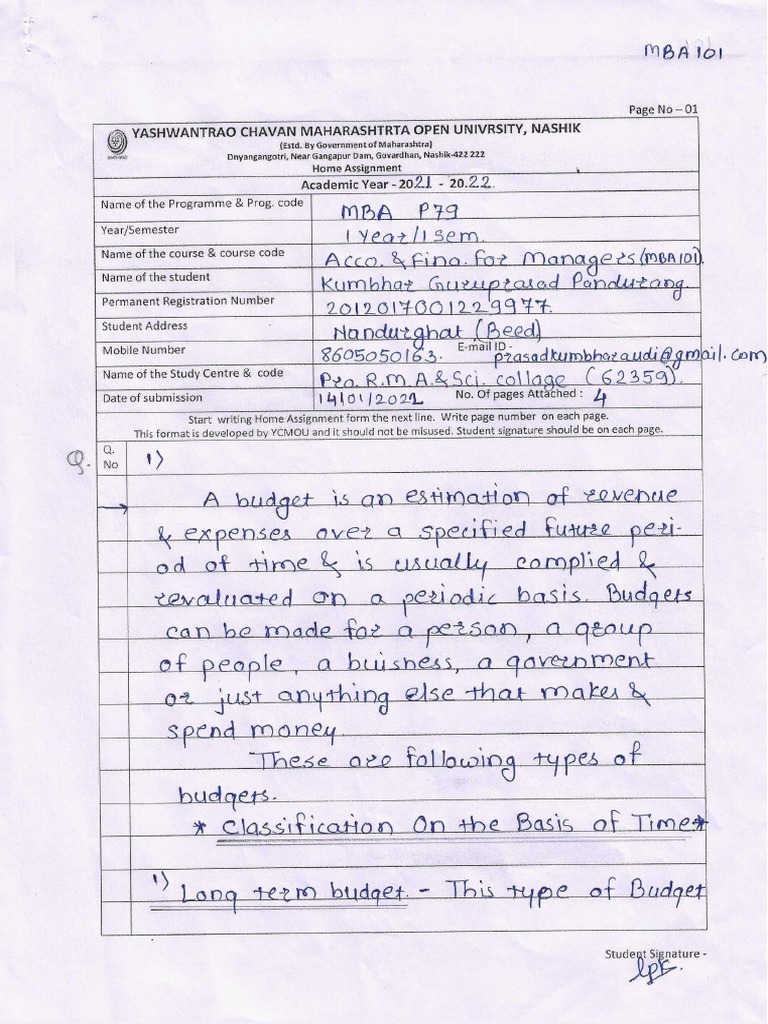 MBA101
Page No – 01
YASHWANTRAO CHAVAN MAHARASHTRTA OPEN UNIVRSITY, NASHIK
(Estd. By Government of Maharashtra)
Dnyangangotri, Near Gangapur Dam, Govardhan, Nashik-422 222
Home Assignment
Academic Year - 2021 - 2022.
Name of the Programme & Prog. code MBA P79
Year/Semester 1 Year/1 Sem.
Name of the course & course code Acco. & Fina. for Managers (MBA101).
Name of the student Kumbhar Guruprasad Pandurang.
Permanent Registration Number 2012017001229977.
Student Address Nandurghat (Beed)
Mobile Number 8605050163. E-mail ID - prasadkumbharaudi@gmail.com
Name of the Study Centre & code Pra. R.M.A.& Sci. collage (62359).
Date of submission 14/01/2022 No. Of pages Attached : 4
Start writing Home Assignment form the next line. Write page number on each page.
This format is developed by YCMOU and it should not be misused. Student signature should be on each page.
Q. Q. No 1)
→ A budget is an estimation of revenue
& expenses over a specified future peri-
od of time & is usually complied &
revaluated on a periodic basis. Budgets
can be made for a person, a group
of people, a buisness, a government
or just anything else that makes &
spend money.
These are following types of
budgets.
* Classification On the Basis of Time*
1) Long term budget. - This type of Budget
Student Signature -